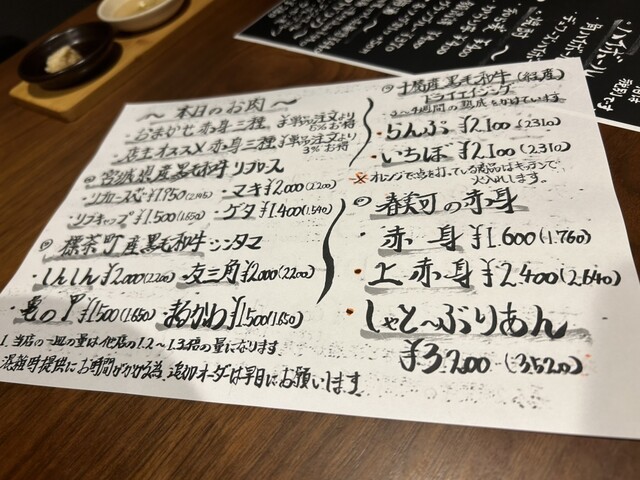 〜 本日のお肉 〜
・おまかせ赤身三種 ¥単品注文より5%お得
・店主オススメ赤身三種 ¥単品注文より3%お得
宮城県産黒毛和牛 リブロース
・リブロース芯 ¥1,950(2,145) ・マキ ¥2,000(2,200)
・リブキャップ ¥1,500(1,650) ・ゲタ ¥1,400(1,540)
標茶町産黒毛和牛 シンタマ
・しんしん ¥2,000(2,200) 友三角 ¥2,000(2,200)
・亀の甲 ¥1,500(1,650) ・まるかわ ¥1,500(1,650)
1. 当店の一皿の量は他店の1.2〜1.3倍の量になります
混雑時提供にお時間がかかる為、追加オーダーは早目にお願います
十勝産黒毛和牛(経産)
ドライエイジング
3〜4週間の熟成をかけています
らんぷ ¥2,100(2,310)
・いちぼ ¥2,100(2,310)
※オレンジで点を打っている商品はキッチンで
火入れします。
の赤身
・赤身 ¥1,600(1,760)
・上赤身 ¥2,400(2,640)
・しゃと〜ぶりあん
¥3,200(3,520)
ハイボール